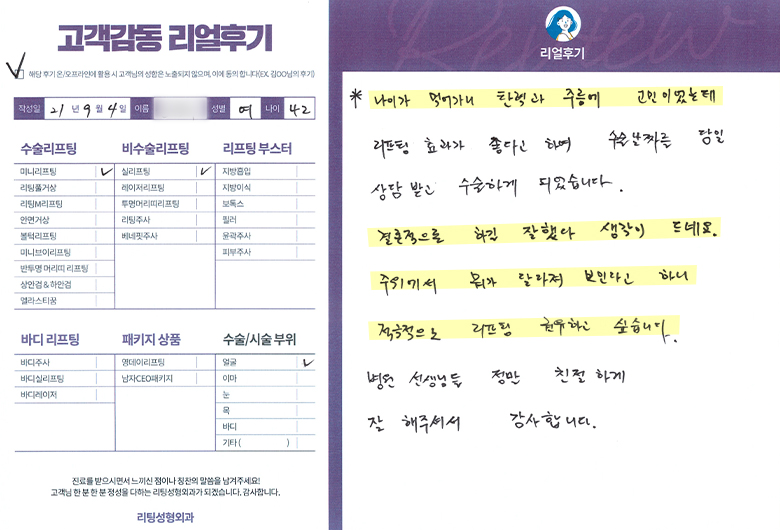 고객감동 리얼후기
해당 후기 온/오프라인에 활용 시 고객님의 성함은 노출되지 않으며, 이에 동의 합니다(EX. 김OO님의 후기)
작성일 21 년 9 월 4 일 이름 성별 여 나이 42
수술리프팅 비수술리프팅 리프팅 부스터
미니리프팅 ✓ 실리프팅 ✓ 지방흡입
리팅풀거상 레이저리프팅 지방이식
리팅M리프팅 투명머리띠리프팅 보톡스
안면거상 리팅주사 필러
볼턱리프팅 베네핏주사 윤곽주사
미니브이리프팅 피부주사
반투명 머리띠 리프팅
상안검 & 하안검
엘라스티꿈
바디 리프팅 패키지 상품 수술/시술 부위
바디주사 영데이리프팅 얼굴 ✓
바디실리프팅 남자CEO패키지 이마
바디레이저 눈
목
바디
기타 ( )
진료를 받으시면서 느끼신 점이나 칭찬의 말씀을 남겨주세요!
고객님 한 분 한 분 정성을 다하는 리팅성형외과가 되겠습니다. 감사합니다.
리팅성형외과
Review
리얼후기
* 나이가 먹어가니 탄력과 주름에 고민이었는데
리프팅 효과가 좋다고 하여 수술날짜를 당일
상담 받고 수술하게 되었습니다.
결론적으로 하길 잘했다 생각이 드네요.
주위에서 뭐가 달라져 보인다고 하니
적극적으로 리프팅 권유하고 싶습니다.
병원 선생님들 정말 친절하게
잘 해주셔서 감사합니다.